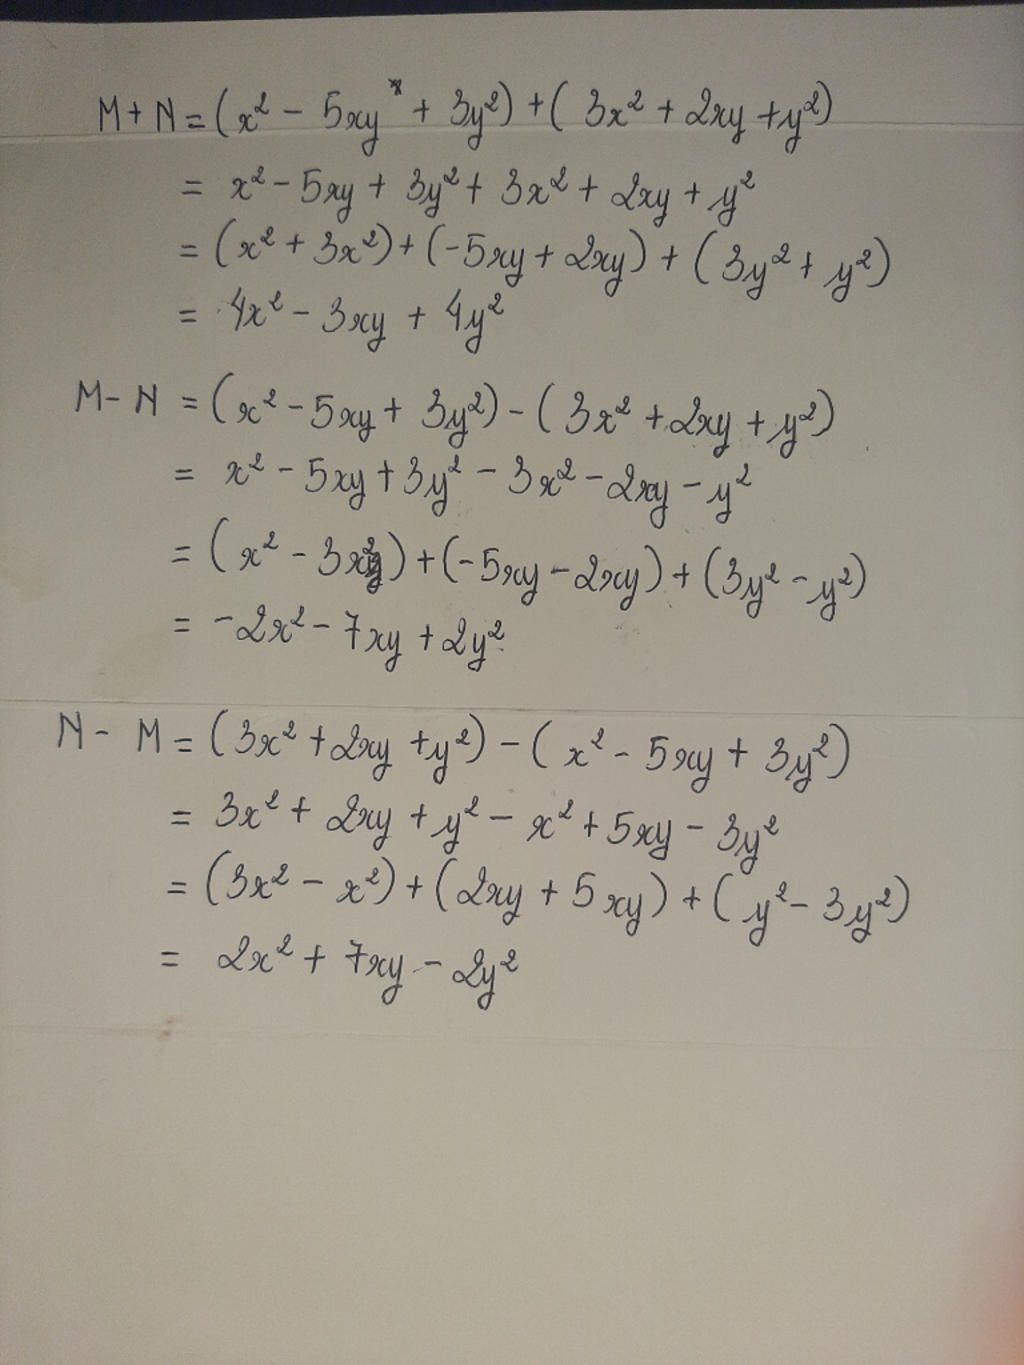 M + N = (x² - 5xy + 3y²) + (3x² + 2xy + y²)
= x² - 5xy + 3y² + 3x² + 2xy + y²
= (x² + 3x²) + (-5xy + 2xy) + (3y² + y²)
= 4x² - 3xy + 4y²
M - N = (x² - 5xy + 3y²) - (3x² + 2xy + y²)
= x² - 5xy + 3y² - 3x² - 2xy - y²
= (x² - 3x²) + (-5xy - 2xy) + (3y² - y²)
= -2x² - 7xy + 2y²
N - M = (3x² + 2xy + y²) - (x² - 5xy + 3y²)
= 3x² + 2xy + y² - x² + 5xy - 3y²
= (3x² - x²) + (2xy + 5xy) + (y² - 3y²)
= 2x² + 7xy - 2y²